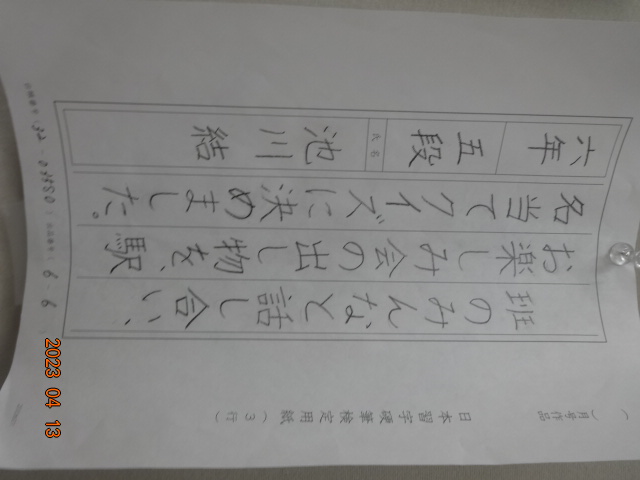 班のみんなと話し合い、
お楽しみ会の出し物を、駅
名当てクイズに決めました。
六年 五段 氏名 池川結
日本習字硬筆検定用紙(3行)
月号作品
6・6
2023 04 13